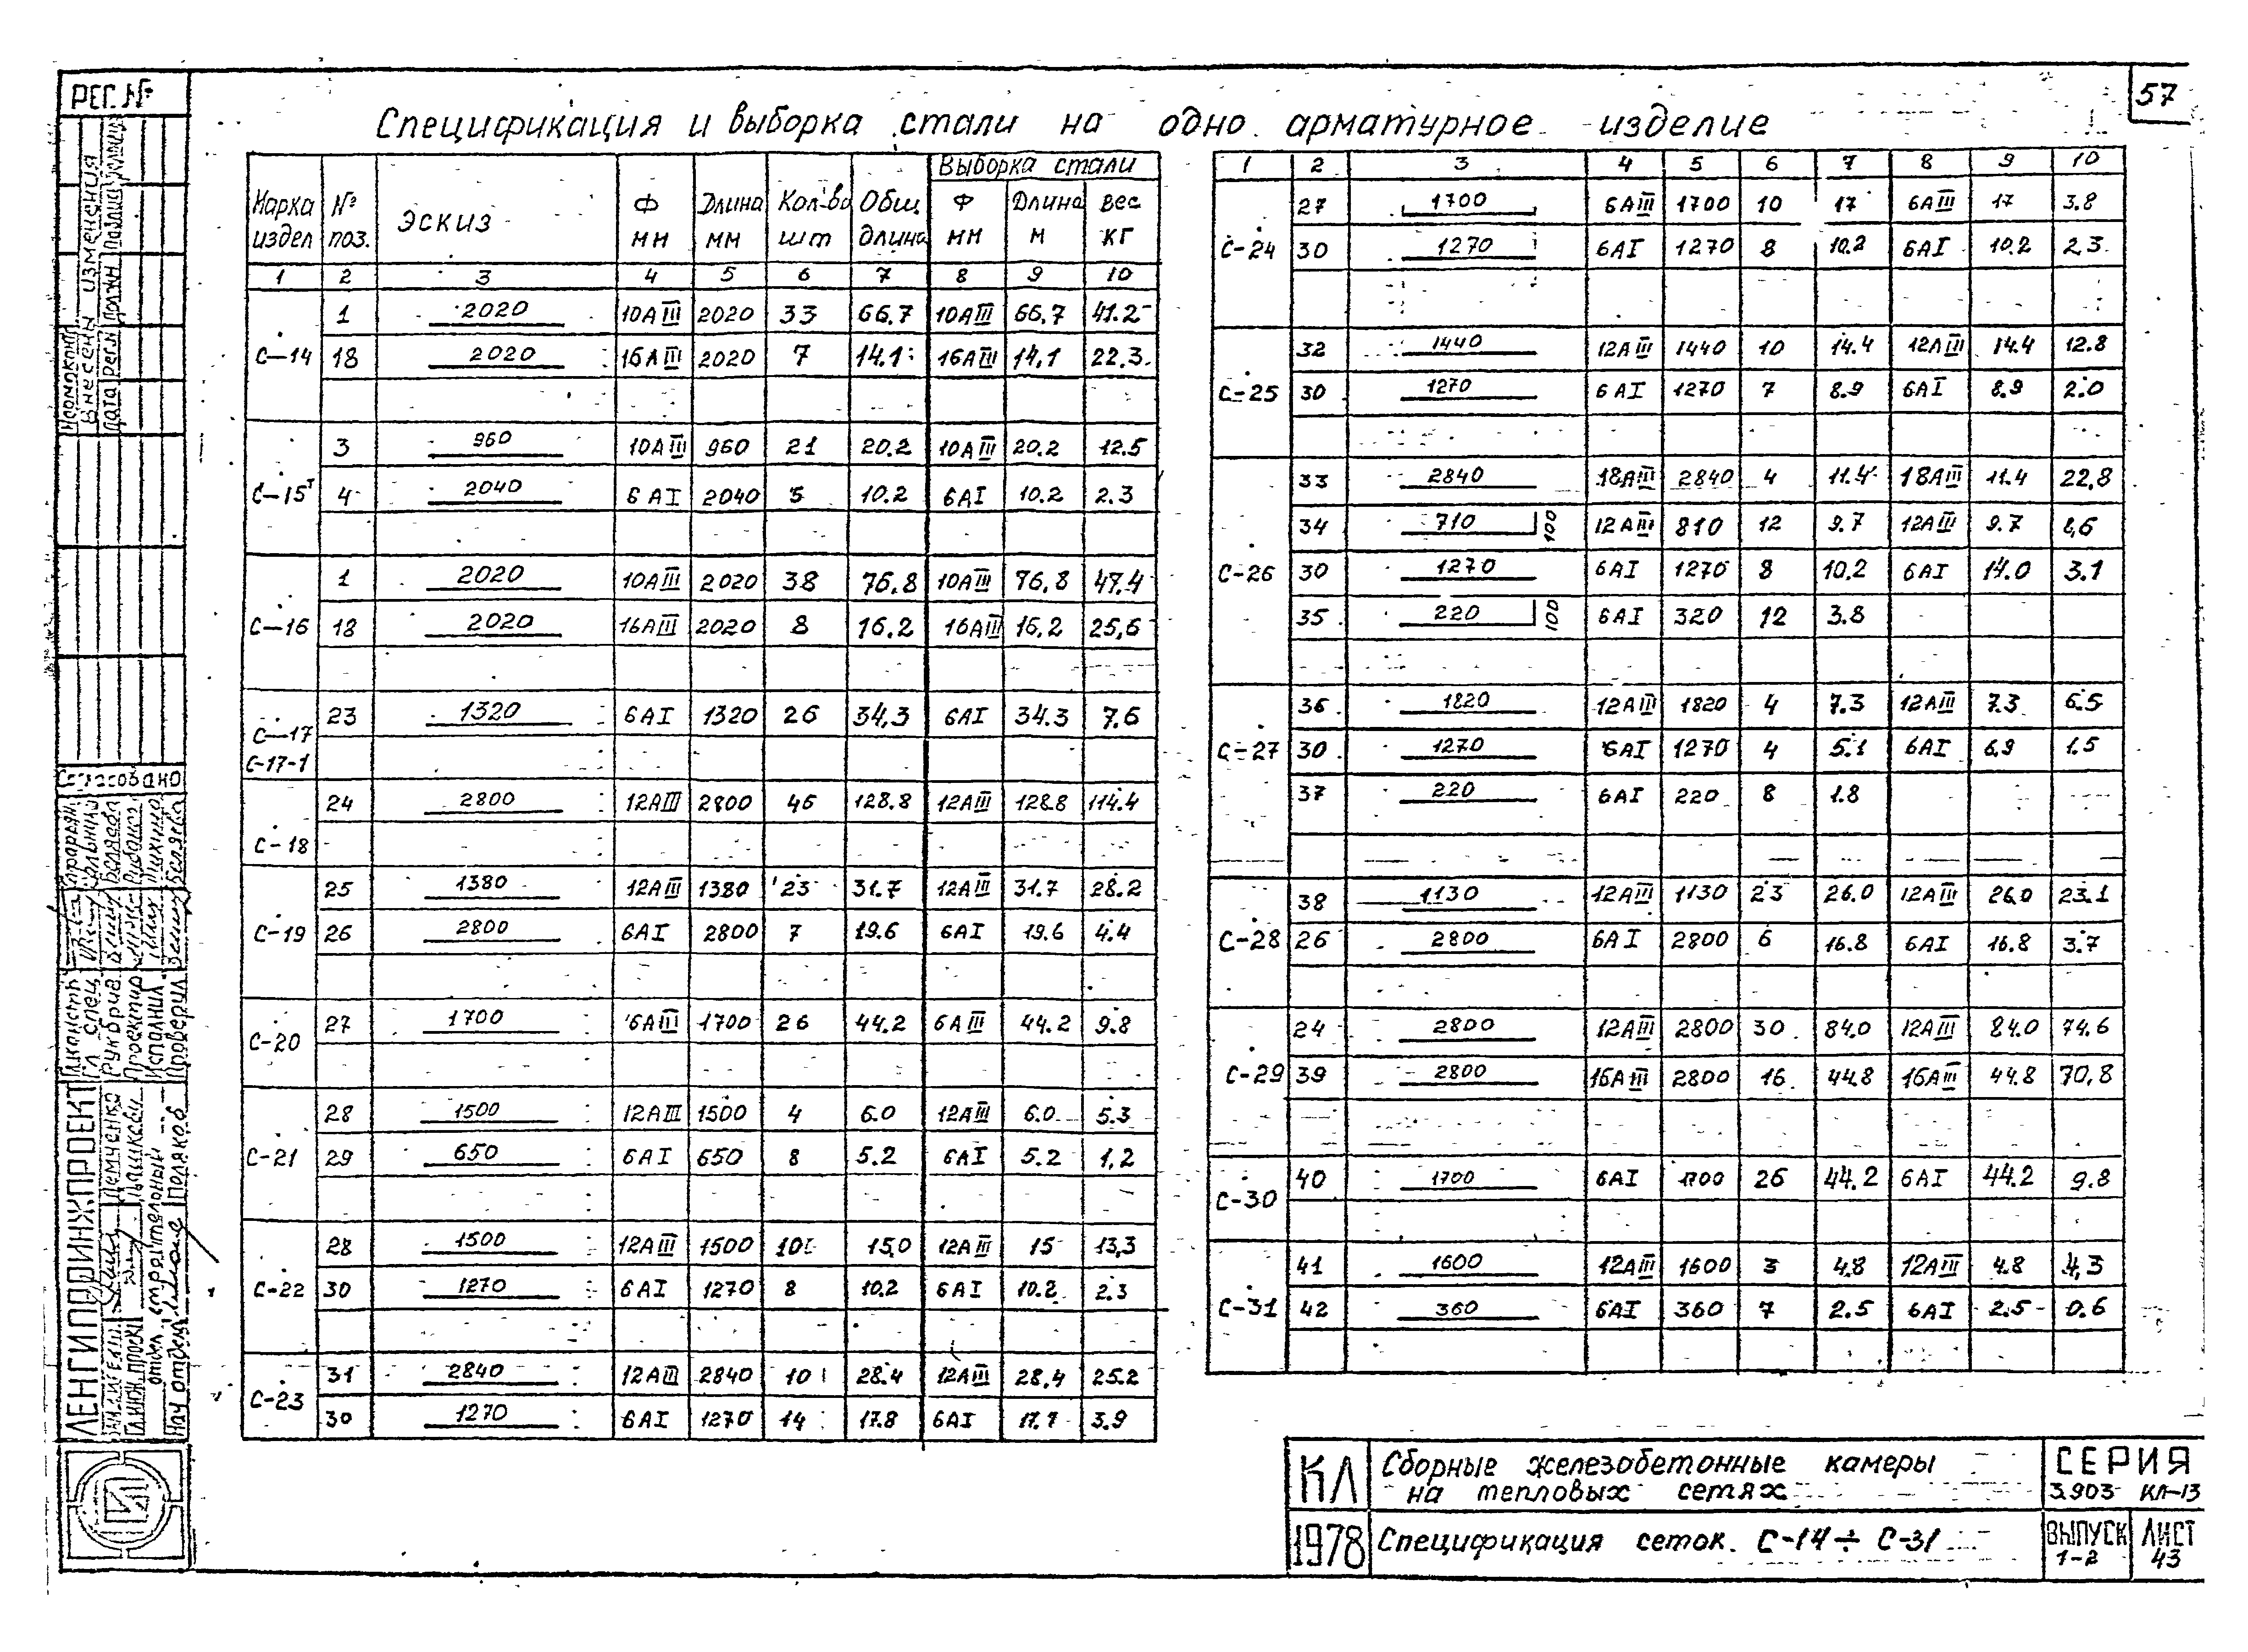 РЕГ. №
57
Спецификация и выборка стали на одно арматурное изделие
Марка издел | № поз. | Эскиз | Ф мм | Длина мм | Кол-во шт | Общ. длина | Выборка стали
Ф мм | Длина м | Вес кг
1 | 2 | 3 | 4 | 5 | 6 | 7 | 8 | 9 | 10
С-14 | 1 | 2020 | 10АIII | 2020 | 33 | 66.7 | 10АIII | 66.7 | 41.2
18 | 2020 | 16АIII | 2020 | 7 | 14.1 | 16АIII | 14,1 | 22.3
С-15т | 3 | 960 | 10АIII | 960 | 21 | 20.2 | 10АIII | 20.2 | 12.5
4 | 2040 | 6АI | 2040 | 5 | 10.2 | 6АI | 10.2 | 2.3
С-16 | 1 | 2020 | 10АIII | 2020 | 38 | 76.8 | 10АIII | 76,8 | 47.4
18 | 2020 | 16АIII | 2020 | 8 | 16.2 | 16АIII | 16,2 | 25,6
С-17 С-17-1 | 23 | 1320 | 6АI | 1320 | 26 | 34,3 | 6АI | 34.3 | 7.6
С-18 | 24 | 2800 | 12АIII | 2800 | 46 | 128.8 | 12АIII | 128.8 | 114.4
С-19 | 25 | 1380 | 12АIII | 1380 | 23 | 31.7 | 12АIII | 31.7 | 28.2
26 | 2800 | 6АI | 2800 | 7 | 19.6 | 6АI | 19.6 | 4.4
С-20 | 27 | 1700 | 6АIII | 1700 | 26 | 44.2 | 6АIII | 44.2 | 9.8
С-21 | 28 | 1500 | 12АIII | 1500 | 4 | 6.0 | 12АIII | 6.0 | 5.3
29 | 650 | 6АI | 650 | 8 | 5.2 | 6АI | 5.2 | 1,2
С-22 | 28 | 1500 | 12АIII | 1500 | 10 | 15,0 | 12АIII | 15 | 13,3
30 | 1270 | 6АI | 1270 | 8 | 10.2 | 6АI | 10.2 | 2.3
С-23 | 31 | 2840 | 12АIII | 2840 | 10 | 28.4 | 12АIII | 28,4 | 25.2
30 | 1270 | 6АI | 1270 | 14 | 17.8 | 6АI | 17.7 | 3.9
1 | 2 | 3 | 4 | 5 | 6 | 7 | 8 | 9 | 10
С-24 | 27 | 1700 | 6АIII | 1700 | 10 | 17 | 6АIII | 17 | 3.8
30 | 1270 | 6АI | 1270 | 8 | 10.2 | 6АI | 10.2 | 2.3
С-25 | 32 | 1440 | 12АIII | 1440 | 10 | 14.4 | 12АIII | 14.4 | 12.8
30 | 1270 | 6АI | 1270 | 7 | 8.9 | 6АI | 8.9 | 2.0
С-26 | 33 | 2840 | 18АIII | 2840 | 4 | 11.4 | 18АIII | 11.4 | 22,8
34 | 710 100 | 12АIII | 810 | 12 | 9.7 | 12АIII | 9.7 | 8,6
30 | 1270 | 6АI | 1270 | 8 | 10.2 | 6АI | 14.0 | 3.1
35 | 220 100 | 6АI | 320 | 12 | 3.8
С-27 | 36 | 1820 | 12АIII | 1820 | 4 | 7.3 | 12АIII | 7.3 | 6.5
30 | 1270 | 6АI | 1270 | 4 | 5.1 | 6АI | 6,9 | 1.5
37 | 220 | 6АI | 220 | 8 | 1.8
С-28 | 38 | 1130 | 12АIII | 1130 | 23 | 26.0 | 12АIII | 26.0 | 23.1
26 | 2800 | 6АI | 2800 | 6 | 16.8 | 6АI | 16.8 | 3.7
С-29 | 24 | 2800 | 12АIII | 2800 | 30 | 84.0 | 12АIII | 84.0 | 74.6
39 | 2800 | 16АIII | 2800 | 16 | 44.8 | 16АIII | 44.8 | 70,8
С-30 | 40 | 1700 | 6АI | 1700 | 26 | 44.2 | 6АI | 44.2 | 9.8
С-31 | 41 | 1600 | 12АIII | 1600 | 3 | 4.8 | 12АIII | 4.8 | 4,3
42 | 360 | 6АI | 360 | 7 | 2.5 | 6АI | 2.5 | 0.6
КЛ
Сборные железобетонные камеры
на тепловых сетях
СЕРИЯ
3.903 КЛ-13
1978
Спецификация сеток С-14÷С-31
ВЫПУСК
1-2
ЛИСТ
43
Внесены изменения
Дата
Рег.№
Должн.
Подпись
Согласовано
ЛЕНГИПРОИНЖПРОЕКТ
Демченко
отдел строительный
Нач отдела
Поляков
Гл. спец.
Рук бриг.
Проектир
Исполнил
Проверил
Беляева